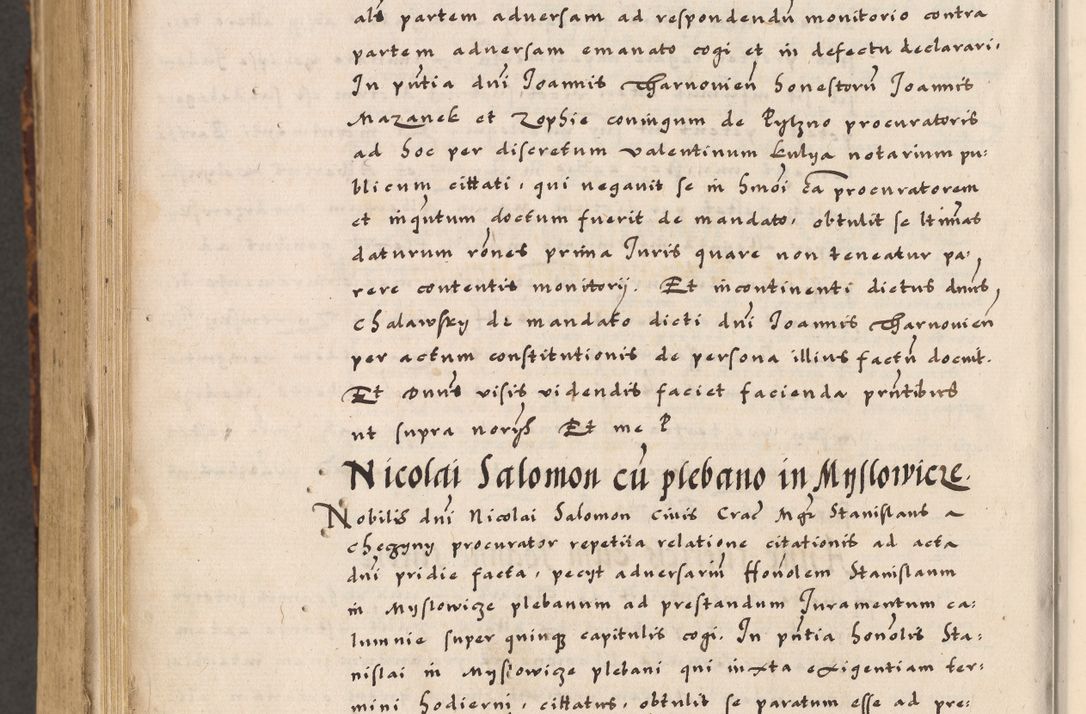 als partem adversam ad respondendū monitorio contra
partem adversam emanato cogi et in defectu declarari.
In pn̄tia dn̄i Joannis Tharnovien̄ honestorū Joannis
Mazanek et Zophie coniugum de Pylzno procuratoris
ad hoc per discretum valentinum kulya notarium pu:
blicum cittati, qui negavit se in hm̄oi cā procuratorem
et inq̄utum doctum fuerit de mandato, obtulit se ltimas
daturum rōnes prima Juris quare non teneatur pa,
rere contentis monitorij. Et incontinenti dictus dn̄us
Chalawsky de mandato dicti dn̄i Joannis Tharnovien̄
per actum constitutionis de persona illius factū docuit.
Et Dnūs visis videndis faciet facienda prn̄tibus
ut supra norijs Et me P
Nicolai Salomon cū plebano in Myslowicze.
Nobilis dn̄i Nicolai Salomon civis Crac̄ Mgr̄ Stanislaus a
chegyny procurator repetita relatione citationis ad acta
dn̄i pridie facta, pecyt adversariū Honōlem Stanislaum
in Myslowicze plebanum ad prestandum Juramentum ca:
lumnie super quinq̨ capitulis cogi. In pn̄tia honōlis Sta:
nislai in Myslowicze plebani qui iuxta exigentiam ter:
mini hodierni, cittatus, obtulit se paratum esse ad pre: